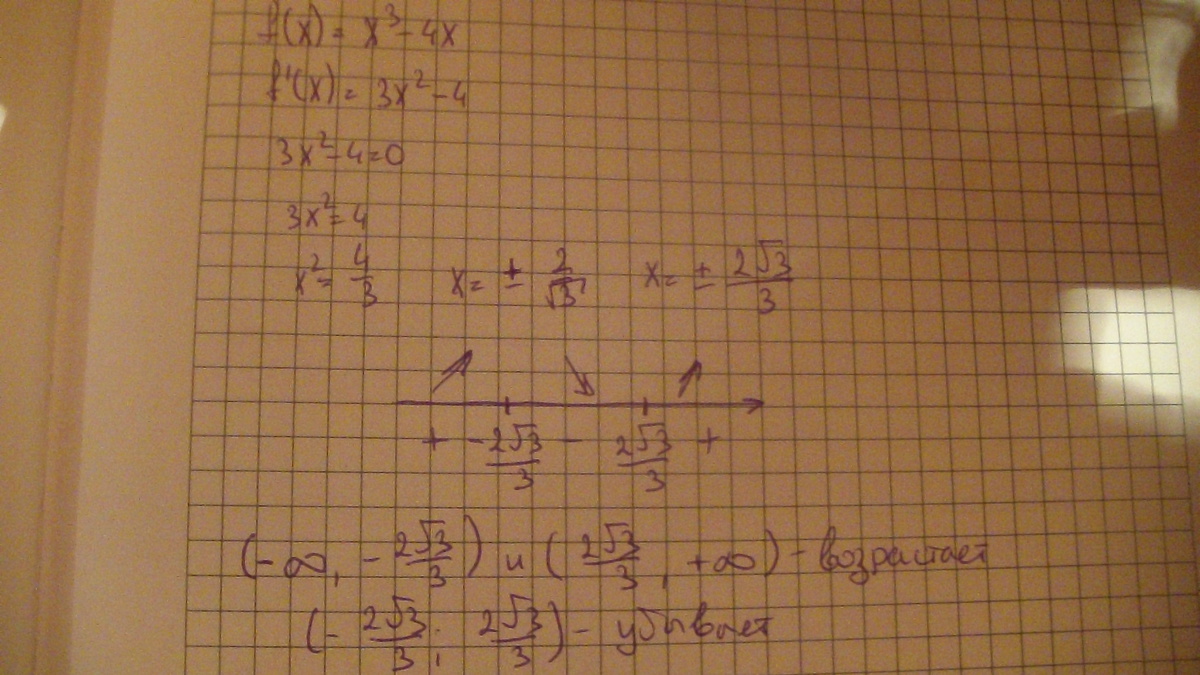 f(x) = x³ - 4x
f'(x) = 3x² - 4
3x² - 4 = 0
3x² = 4
x² = 4/3 x = ± 2/√3 x = ± 2√3/3
+ -2√3/3 - 2√3/3 +
(-∞, -2√3/3) и (2√3/3, +∞) - возрастает
(-2√3/3; 2√3/3) - убывает